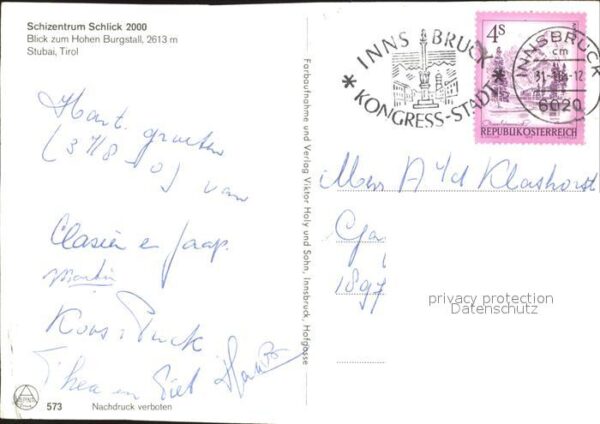 Schizentrum Schlick 2000
Blick zum Hohen Burgstall, 2613 m
Stubai, Tirol
Hart. groeten
van
Clasien en Jaap.
Martin
Koos + Puck
Thea en Siel
573 Nachdruck verboten
Farbaufnahme und Verlag Viktor Holy und Sohn, Innsbruck, Hofgasse
INNSBRUCK
KONGRESS-STADT
4S
REPUBLIK ÖSTERREICH
INNSBRUCK
cm
6020
A v/d Klashorst
1897
privacy protection
Datenschutz